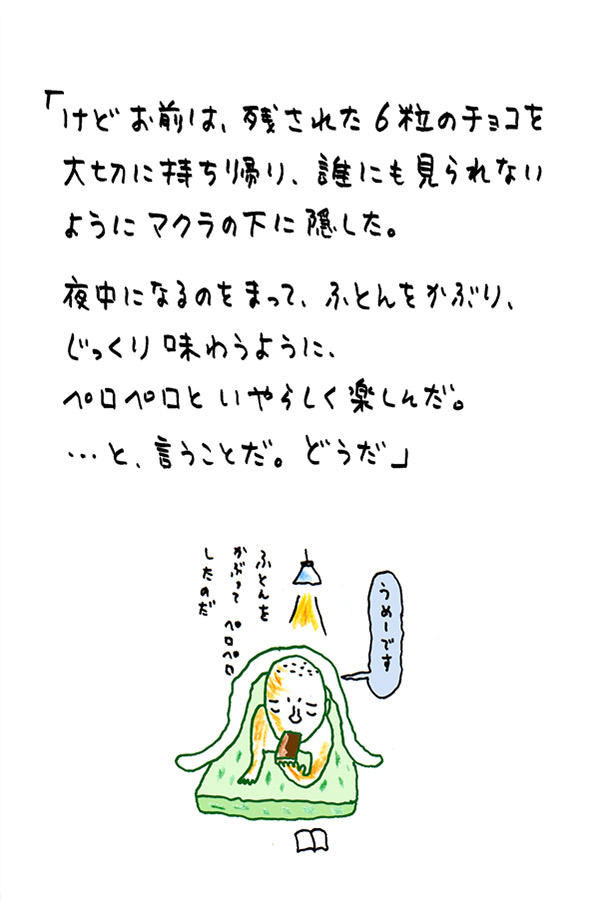 「けど お前は、残された 6粒のチョコを
大切に持ち帰り、誰にも見られない
ように マクラの下に隠した。
夜中になるのをまって、ふとんをかぶり、
じっくり味わうように、
ペロペロと いやらしく楽しんだ。
…と、言うことだ。どうだ」
うめーです
ふとんを
かぶって ペロペロ
したのだ